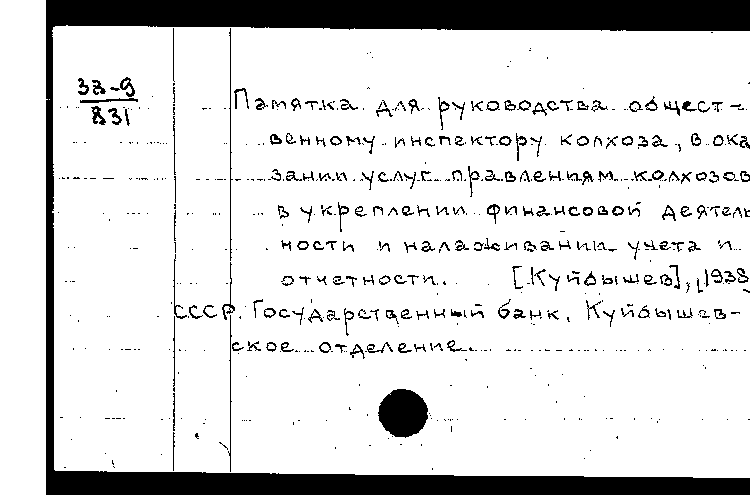 33-9
831
Памятка для руководства общест-
венному инспектору колхоза, в ока
зании услуг правлениям колхозов
в укреплении финансовой деятель
ности и налаживании учета и
отчетности. [Куйбышев], [1938
СССР. Государственный банк. Куйбышев-
ское отделение.